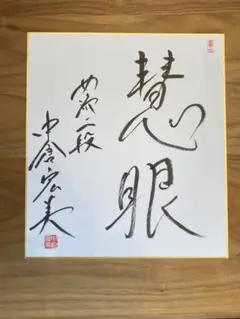 慧眼
女流二段
中倉宏美